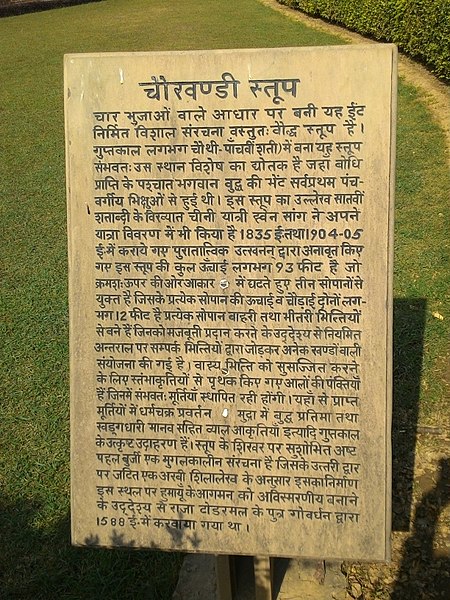 चौखण्डी स्तूप
चार भुजाओं वाले आधार पर बनी यह ईंट
निर्मित विशाल संरचना वस्तुतः बौद्ध स्तूप है।
गुप्तकाल लगभग चौथी-पाँचवीं शती) में बना यह स्तूप
संभवतः उस स्थान विशेष का द्योतक है जहां बोधि
प्राप्ति के पश्चात भगवान बुद्ध की भेंट सर्वप्रथम पंच-
वर्गीय भिक्षुओं से हुई थी। इस स्तूप का उल्लेख सातवीं
शताब्दी के विख्यात चीनी यात्री ह्वेन सांग ने अपने
यात्रा विवरण में भी किया है 1835 ई. तथा 1904-05
ई. में कराये गए पुरातात्विक उत्खनन द्वारा अनावृत किए
गए इस स्तूप की कुल ऊंचाई लगभग 93 फीट है जो
क्रमशः ऊपर की ओर आकार में घटते हुए तीन सोपानों से
युक्त है जिसके प्रत्येक सोपान की ऊंचाई व चौड़ाई दोनों लग-
भग 12 फीट है प्रत्येक सोपान बाहरी तथा भीतरी भित्तियों
से बने हैं जिनको मजबूती प्रदान करने के उद्देश्य से नियमित
अन्तराल पर सम्पर्क भित्तियों द्वारा जोड़कर अनेक खण्डों वाली
संयोजना की गई है। वाह्य भित्ति को सुसज्जित करने
के लिए स्तंभाकृतियों से पृथक किए गए आलों की पंक्तियाँ
हैं जिनमें संभवतः मूर्तियां स्थापित रही होंगी। यहाँ से प्राप्त
मूर्तियों में धर्मचक्र प्रवर्तन मुद्रा में बुद्ध प्रतिमा तथा
खड्गधारी मानव सहित व्याल आकृतियाँ इत्यादि गुप्तकाल
के उत्कृष्ट उदाहरण हैं। स्तूप के शिखर पर सुशोभित अष्ट
पहल बुर्जी एक मुगलकालीन संरचना है जिसके उत्तरी द्वार
पर जटित एक अरबी शिलालेख के अनुसार इसका निर्माण
इस स्थल पर हुमायूँ के आगमन को अविस्मरणीय बनाने
के उद्देश्य से राजा टोडरमल के पुत्र गोवर्धन द्वारा
1588 ई. में करवाया गया था।